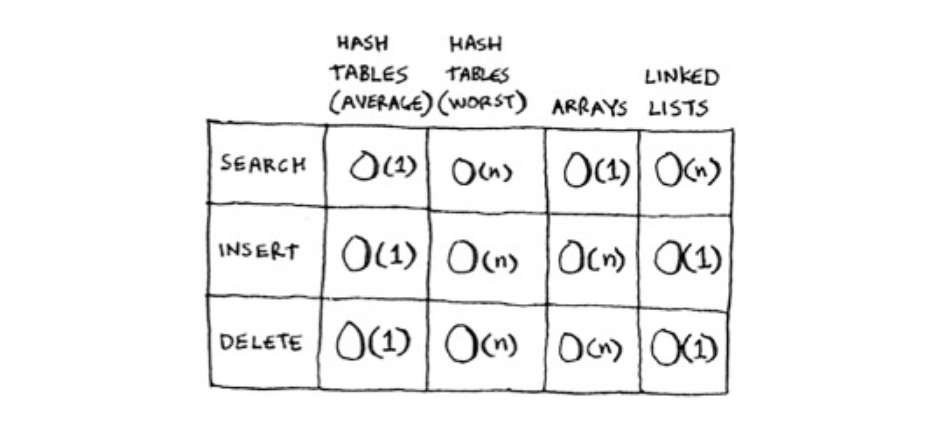 HASH TABLES (AVERAGE)
HASH TABLES (WORST)
ARRAYS
LINKED LISTS
SEARCH O(1) O(n) O(1) O(n)
INSERT O(1) O(n) O(n) O(1)
DELETE O(1) O(n) O(n) O(1)